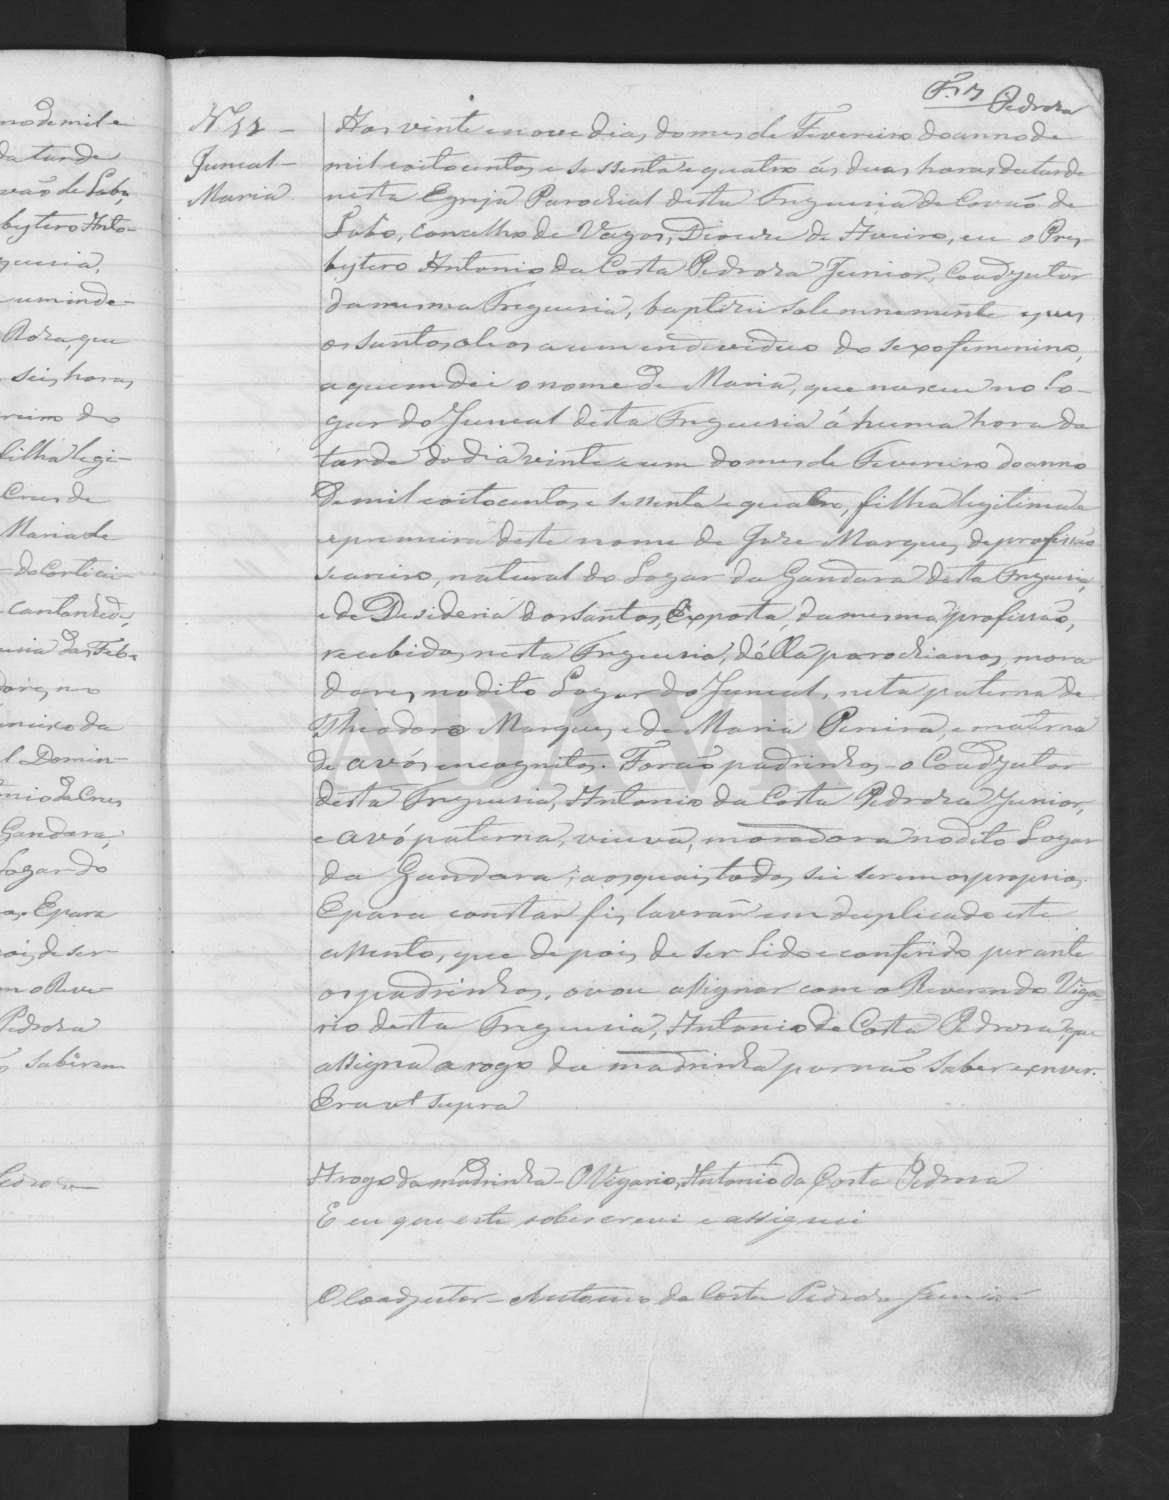 F. 7 Pedroza
nodemil e
da tarde
vão de Lobo,
bytero Anto-
guesia,
Roza, que
seis horas
filha legi-
Crus de
Maria de
Gandara,
Logar do
as. E para
ois de ser
m o Reve-
Pedroza
saberem
Juncal -
Maria
Aos vinte e nove dias do mes de Fevereiro do anno de
mil oitocentos e sessenta e quatro ás duas horas da tarde
nesta Egreja Parochial desta Freguesia de Covão de
Lobo, concelho de Vagos, Diocese de Aveiro, eu o Pres-
bytero Antonio da Costa Pedroza Junior, Coadjutor
da mesma Freguesia, baptizei solemnemente e pus
os santos oleos a um endeviduo do sexo femenino,
a quem dei o nome de Maria, que nasceu no Lo-
gar do Juncal desta Freguesia á huma hora da
tarde do dia vinte e um do mes de Fevereiro do anno
de mil oitocentos e sessenta e quatro, filha legitima e
e premeira deste nome de Joze Marques, de profissão
seareiro, natural do Logar da Gandara desta Freguesia,
e de Desideria dos Santos, Exposta, da mesma profissão,
recebidos nesta Freguesia, d'élla parochianos, mora
dores no dito Logar do Juncal, neta paterna de
Theodoro Marques e de Maria Pereira, e materna
de avós encognitos. Forão padrinhos o Coadjutor
desta Freguesia, Antonio da Costa Pedroza Junior,
e avó paterna, viuva, moradora no dito Logar
da Gandara; aos quais todos sei serem os proprios.
E para constar fis lavrar em duplicado este
assento, que depois de ser lido e conferido perante
os padrinhos, o vou assignar com o Reverendo Viga-
rio desta Freguesia, Antonio da Costa Pedroza, que
assigna a rogo da madrinha por não saber escrever.
Era ut supra
A rogo da madrinha - O Vegario, Antonio da Costa Pedroza
E eu que este sobescrevi e assignei
O Coadjutor - Antonio da Costa Pedroza Junior
ADAVR